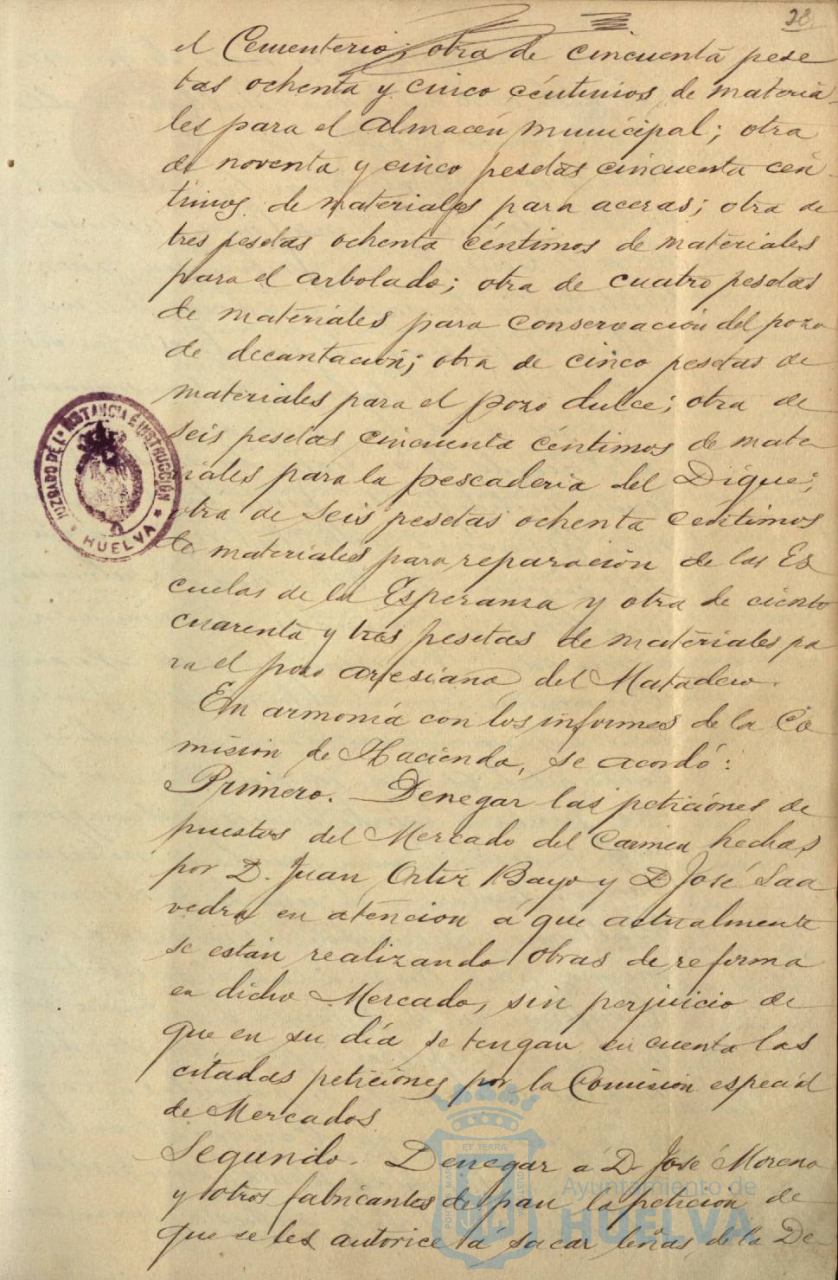 28
el Cementerio; otra de cincuenta pese
tas ochenta y cinco céntimos de materia
les para el almacén municipal; otra
de noventa y cinco pesetas cincuenta cén-
timos de materiales para aceras; otra de
tres pesetas ochenta céntimos de materiales
para el arbolado; otra de cuatro pesetas
de materiales para conservación del pozo
de decantación; otra de cinco pesetas de
materiales para el pozo dulce; otra de
seis pesetas cincuenta céntimos de mate
riales para la pescaderia del Dique;
otra de seis pesetas ochenta céntimos
de materiales para reparación de las Es
cuelas de la Esperanza y otra de ciento
cuarenta y tres pesetas de materiales pa
ra el pozo artesiano del Matadero.
En armonía con los informes de la Co
misión de Hacienda, se acordó:
Primero. Denegar las peticiones de
puestos del Mercado del Carmen hechas
por D. Juan Ortiz Bayo y D José Saa
vedra en atencion á que actualmente
se están realizando obras de reforma
en dicho Mercado, sin perjuicio de
que en su día se tengan en cuenta las
citadas peticiones por la Comisión especial
de Mercados.
Segundo. Denegar á D. José Moreno
y otros fabricantes de pan la peticion de
que se les autorice á sacar leñas de la De-
JUZGADO DE 1ª INSTANCIA E INSTRUCCIÓN
HUELVA
Ayuntamiento de
HUELVA